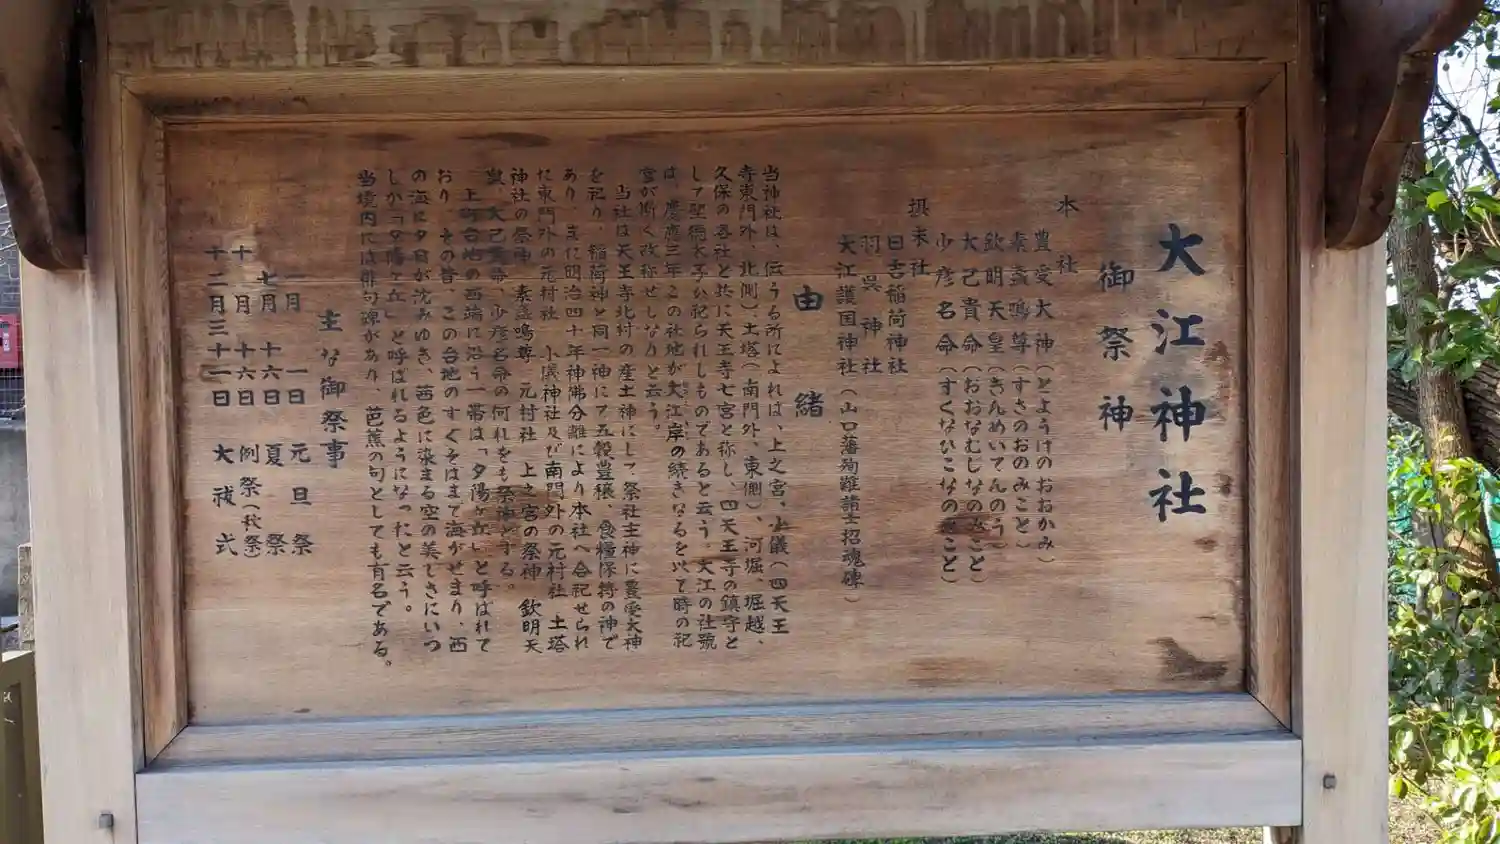 大江神社
御祭神
本社
豊受大神(とようけのおおかみ)
素盞鳴尊(すさのおのみこと)
欽明天皇(きんめいてんのう)
大己貴命(おおなむしなのみこと)
少彦名命(すくなひこなのみこと)
摂末社
日吉稲荷神社
羽呉神社
大江護国神社(山口藩殉難諸士招魂碑)
由緒
当神社は、伝うる所によれば、上之宮、小儀(四天王
寺東門外、北側)土塔(南門外、東側)、河堀、堀越、
久保の各社と共に天王寺七宮と称し、四天王寺の鎮守と
して聖徳太子が祀られしものであると云う。大江の社號
は、慶應三年この社地が大江岸の続きなるを以て時の祀
官が斯く改称せしなりと云う。
当社は天王寺北村の産土神にして祭社主神に豊受大神
を祀り、稲荷神と同一神にて五穀豊穣、食糧保持の神で
あり、また明治四十年神佛分離により本社へ合祀せられ
た東門外の元村社 小儀神社及び南門外の元村社 土塔
神社の祭神 素盞鳴尊 元村社 上之宮の祭神 欽明天
皇、大己貴命、少彦名命の何れをも祭神とする。
上町台地の西端に沿う一帯は「夕陽ヶ丘」と呼ばれて
おり、その昔、この台地のすぐそばまで海がせまり、西
の海に夕日が沈みゆき、茜色に染まる空の美しさにいつ
しか「夕陽ヶ丘」と呼ばれるようになったと云う。
当境内には俳句碑があり 芭蕉の句としても有名である。
主な御祭事
一月 一日 元旦祭
七月 十六日 夏祭
十月 十六日 例祭(秋祭)
十二月三十一日 大祓式